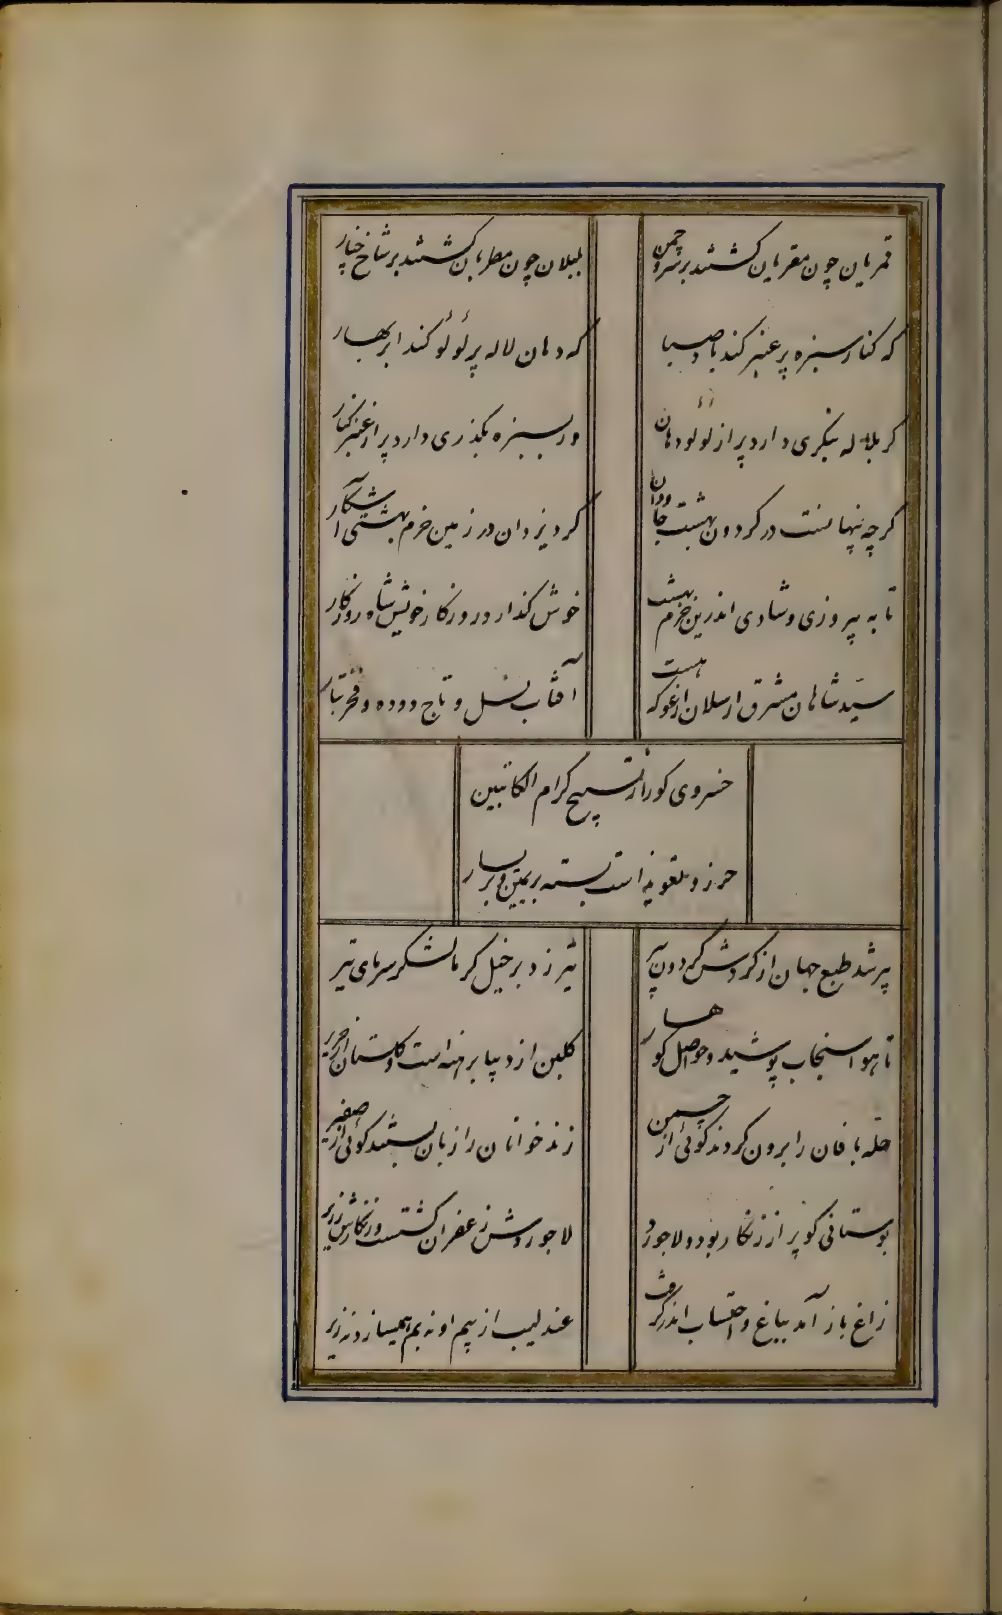 قمریان چون مقریان گشتند بر سرو چمن
بلبلان چون مطربان گشتند بر شاخ چنار
که کنار سبزه پر عنبر کند باد صبا
که دهان لاله پر لؤلؤ کند ابر بهار
کر بلاله بنکری دارد پر از لولو دهان
ور بسبزه بکذری دارد پر از عنبر کنار
کرچه پنهانست در کردون بهشت جاودان
کرد یزدان در زمین خرم بهشتی آشکار
تا به پیروزی و شادی اندرین خرم بهشت
خوش کذارد روزکار خویش شاه روزکار
سید شاهان مشرق ارسلان ارغو که هست
آفتاب نسل و تاج دوده و فخر تبار
خسروی کورا ز تسبیح کرام الکاتبین
حرز و تعویذ است بسته بر یمین و بر یسار
پر شد طبع جهان از گردش گردون پیر
تیر زد بر خیل کرما لشکر سرمای تیر
تا هوا سنجاب پوشید و حواصل کوهسار
کلبن از دیبا برهنه است و کلستان از حریر
حله بافان را برون کردند کوئی از چمن
زند خوانان را زبان بستند کوئی از صفیر
بوستانی کو پر از زنکار بود و لاجورد
لاجوردش زعفران کشتست و زنکارش زریر
زاغ باز آمد بباغ و احتساب اندر گرفت
عندلیب از بیم او نه بم همیسازد نه زیر